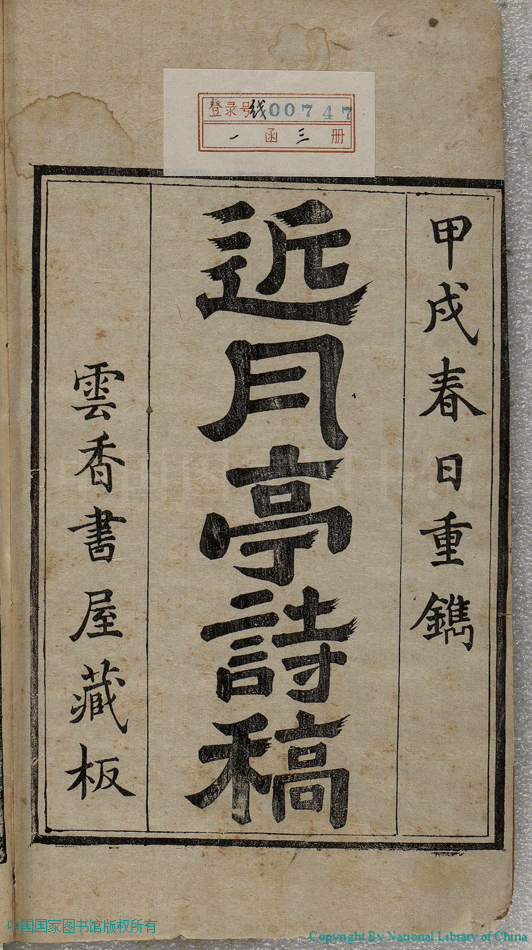 登录号线00747
一函三册
甲戌春日重鐫
近月亭詩稿
雲香書屋藏板
中国国家图书馆版权所有
Copyright By National Library of China